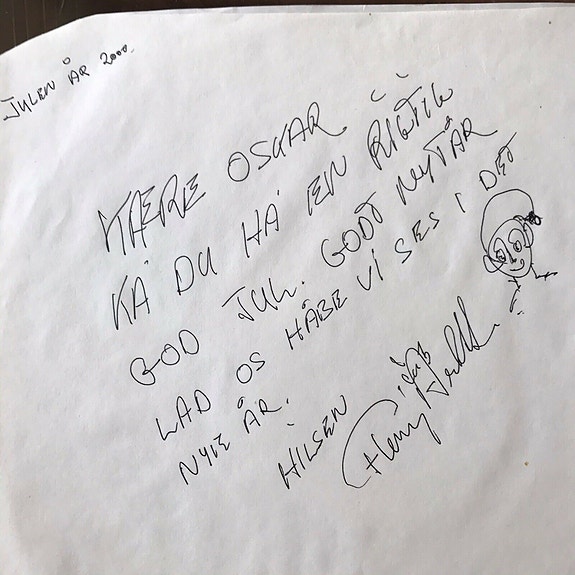 JULEN ÅR 2000.
KÆRE OSKAR
KÅ DU HÅ EN RIGTIG
GOD JUL. GODT NYTÅR
LAD OS HÅBE VI SES I DET
NYE ÅR.
HILSEN